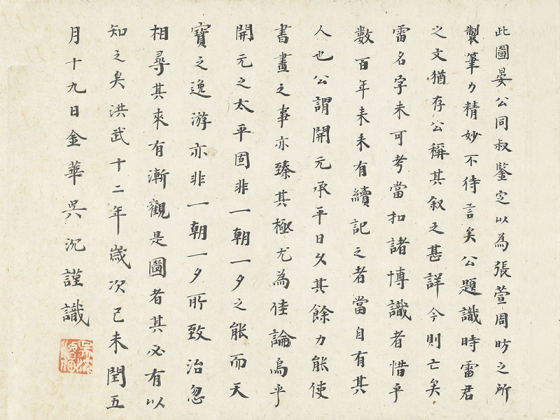 此圖晏公同叔鑒定以為張萱周昉之所
製筆力精妙不待言矣公題識時雷君
之文猶存公稱其敘之甚詳今則亡矣
雷名字未可考當扣諸博識者惜乎
數百年来未有續記之者當自有其
人也公謂開元承平日久其餘力能使
書畫之事亦臻其極尤為佳論烏乎
開元之太平固非一朝一夕之能而天
寶之逸游亦非一朝一夕所致治忽
相尋其來有漸觀是圖者其必有以
知之矣洪武十二年歲次己未閏五
月十九日金華吳沉謹識